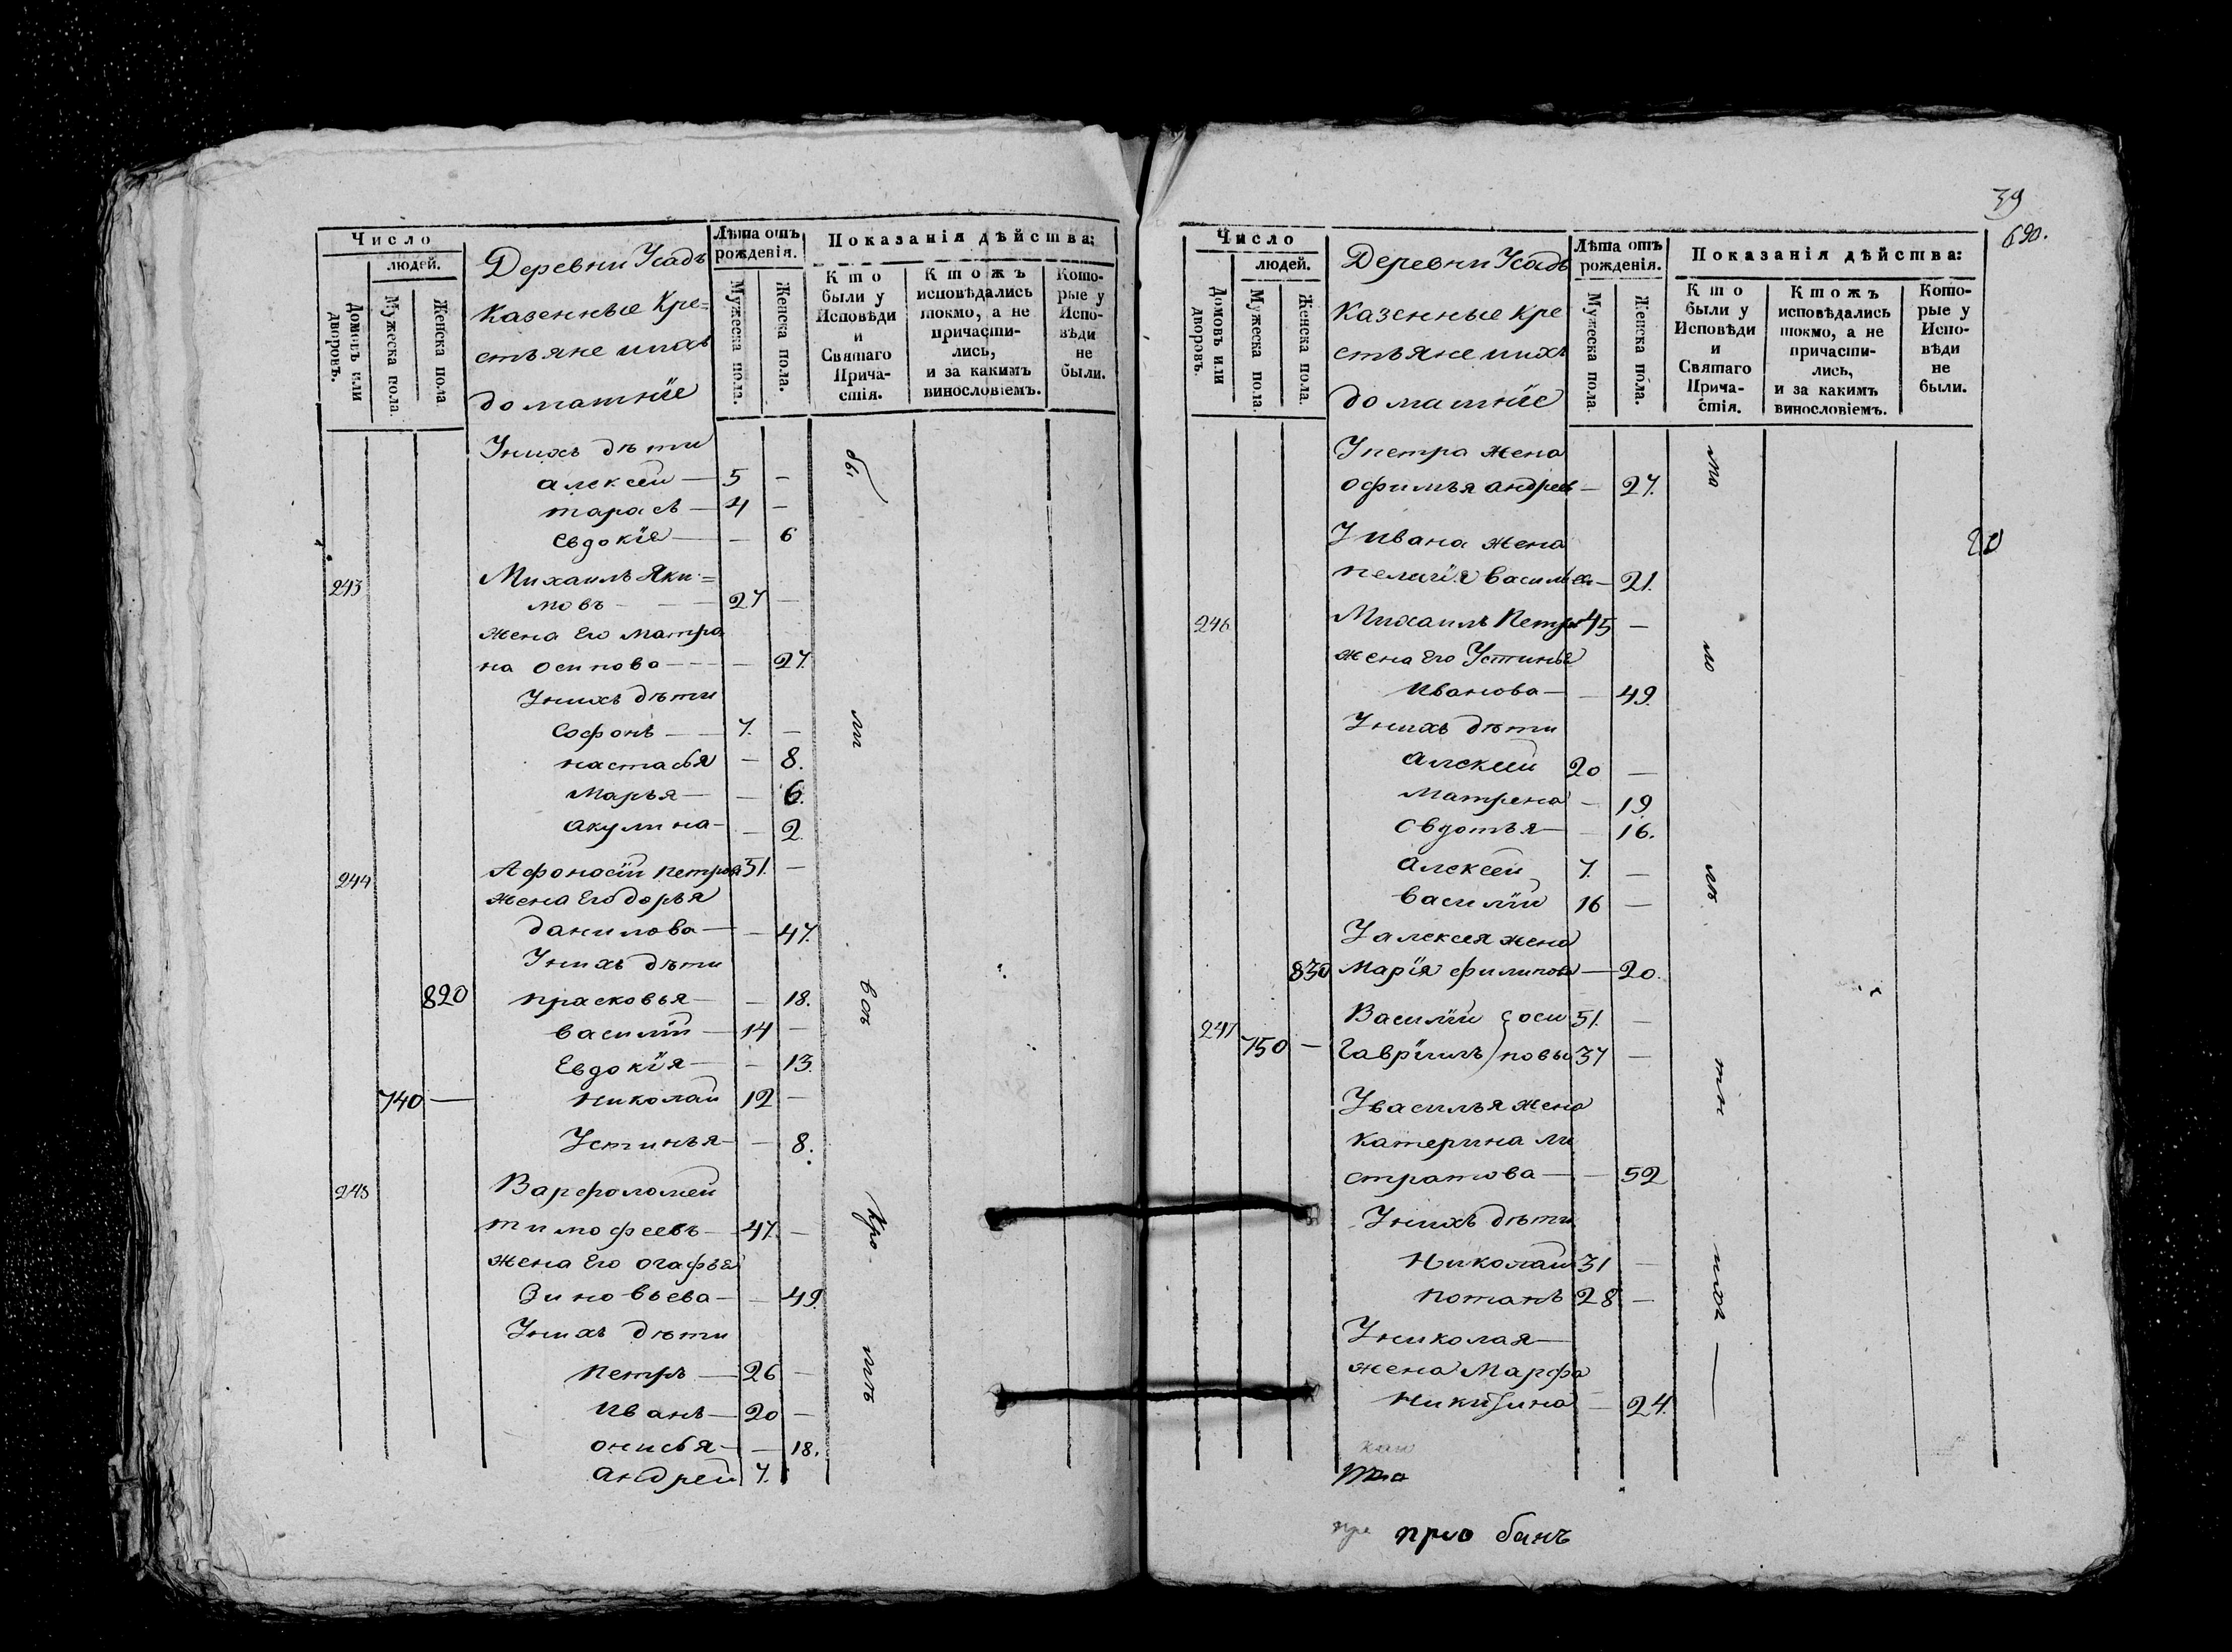 Число
людей.
Домовъ или дворовъ.
Мужеска пола.
Женска пола.
Деревни Усадъ
казенные кре=
стьяне ихъ
домашніе
Лѣта отъ рожденія.
Мужеска пола.
Женска пола.
Показанія дѣйства:
Кто были у Исповѣди и Святаго Причастія.
Ктожъ исповѣдались токмо, а не причастились, и за какимъ винословіемъ.
Которые у Исповѣди не были.
Унихъ дѣти
алексеи — 5 —
тарасъ — 4 —
евдокія — — 6
243 Михаилъ Яки=
мовъ — 27 —
жена его матре
на осипова — — 27.
Унихъ дѣти
софонъ — 7. —
настасья — 8.
марья — — 6.
акулина — — 2.
244 Афонасіи петровъ 51. —
жена его дарья
данилова — — 47.
Унихъ дѣти
820 прасковья — — 18.
василіи — 14 —
Евдокія — — 13.
740 — николаи 12 —
Устинья — — 8.
245 Варфоломеи
тимофеевъ — 47. —
жена его огафья
Зиновьева — — 49.
Унихъ дѣти
петръ — 26 —
иванъ — 20 —
онисья — — 18.
андреи 7.
39
690.
Число
людей.
Домовъ или дворовъ.
Мужеска пола.
Женска пола.
Деревни Усадъ
казенные кре
стьяне ихъ
домашніе
Лѣта отъ рожденія.
Мужеска пола.
Женска пола.
Показанія дѣйства:
Кто были у Исповѣди и Святаго Причастія.
Ктожъ исповѣдались токмо, а не причастились, и за какимъ винословіемъ.
Которые у Исповѣди не были.
Упетра жена
офимья андреев — 27.
Уивана жена
пелагія васильев — 21.
246 Михаилъ Петров 45 —
жена его Устинья
иванова — — 49.
Унихъ дѣти
алексеи 20 —
матрена — 19.
овдотья — — 16.
алексеи 7. —
василіи 16 —
Уалексея жена
830 марія филипова — 20.
247 Василіи оси 51. —
750 — Гавріилъ повы 37 —
Увасилья жена
катерина ли
стратова — — 52
Унихъ дѣти
николаи 31 —
потапъ 28 —
Униколая —
жена марфа
никитина — 24.